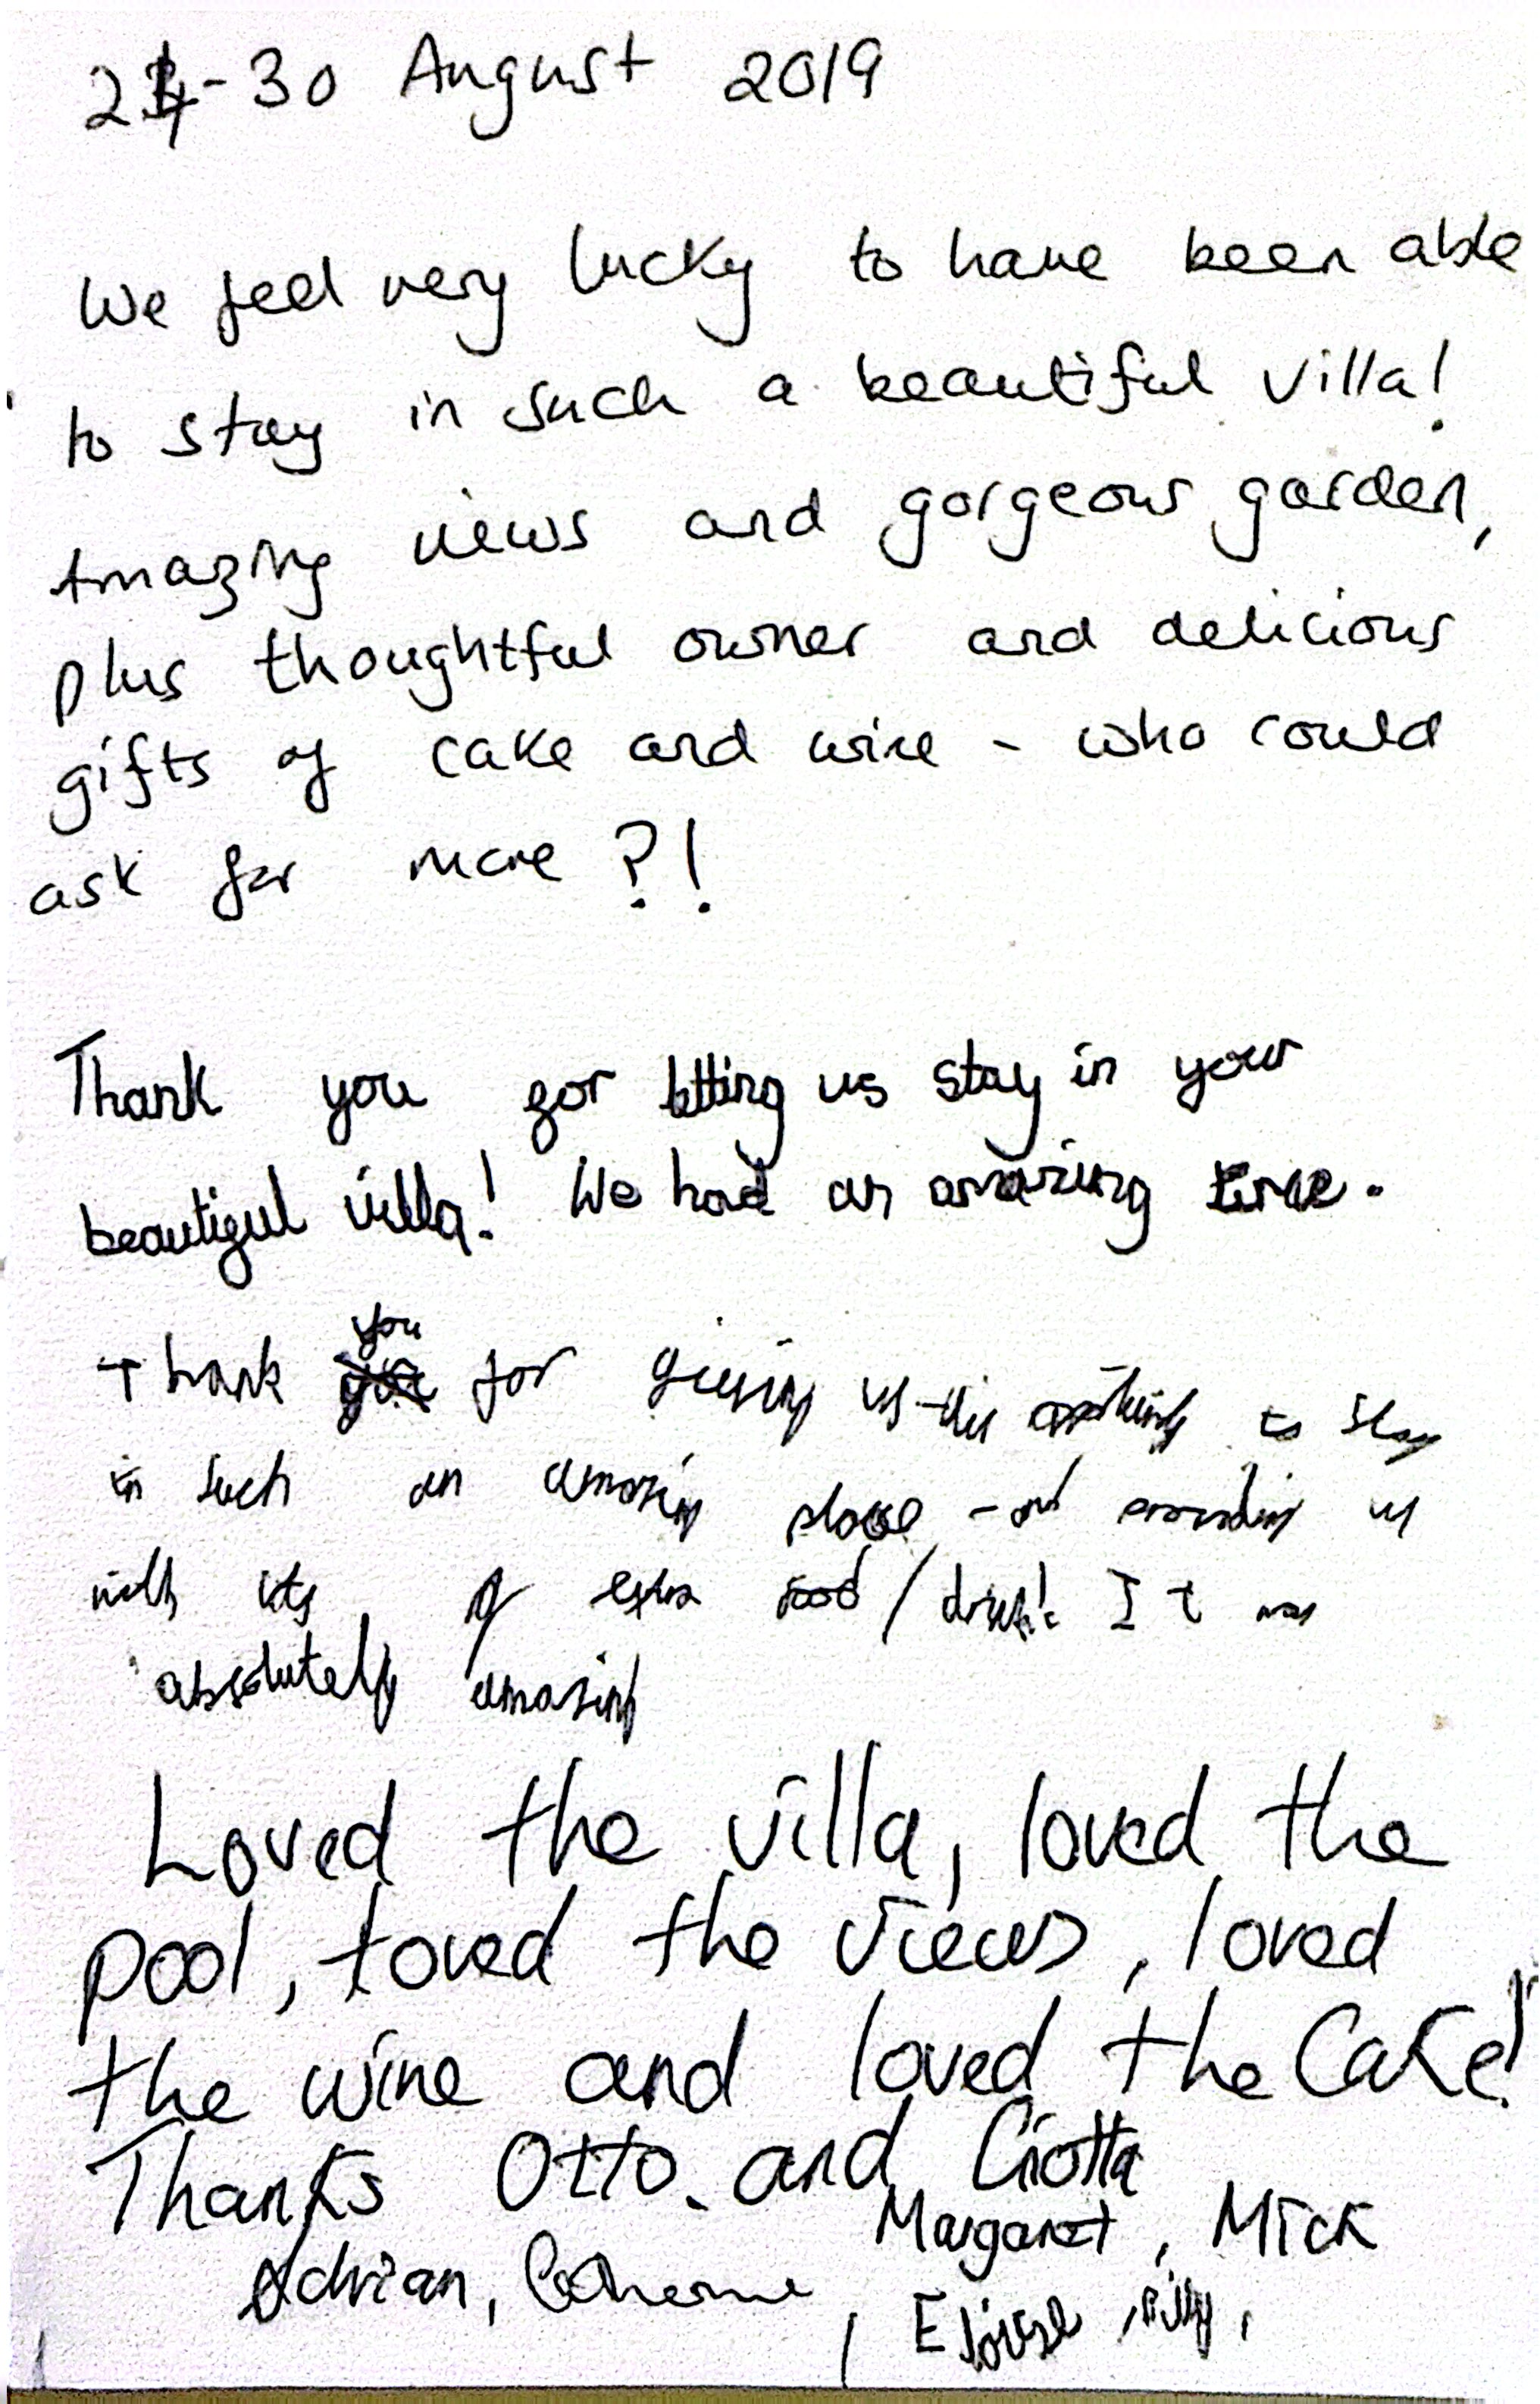 24-30 August 2019
We feel very lucky to have been able
to stay in such a beautiful villa!
Amazing views and gorgeous garden,
plus thoughtful owner and delicious
gifts of cake and wine - who could
ask for more ?!
Thank you for letting us stay in your
beautiful villa! We had an amazing time.
Thank you for giving us the opportunity to stay
in such an amazing place - and providing us
with lots of extra food / drink! It was
absolutely amazing
Loved the villa, loved the
pool, loved the views, loved
the wine and loved the Cake!
Thanks Otto. and
Margaret, Mick
Adrian, Catherine, Eloise,